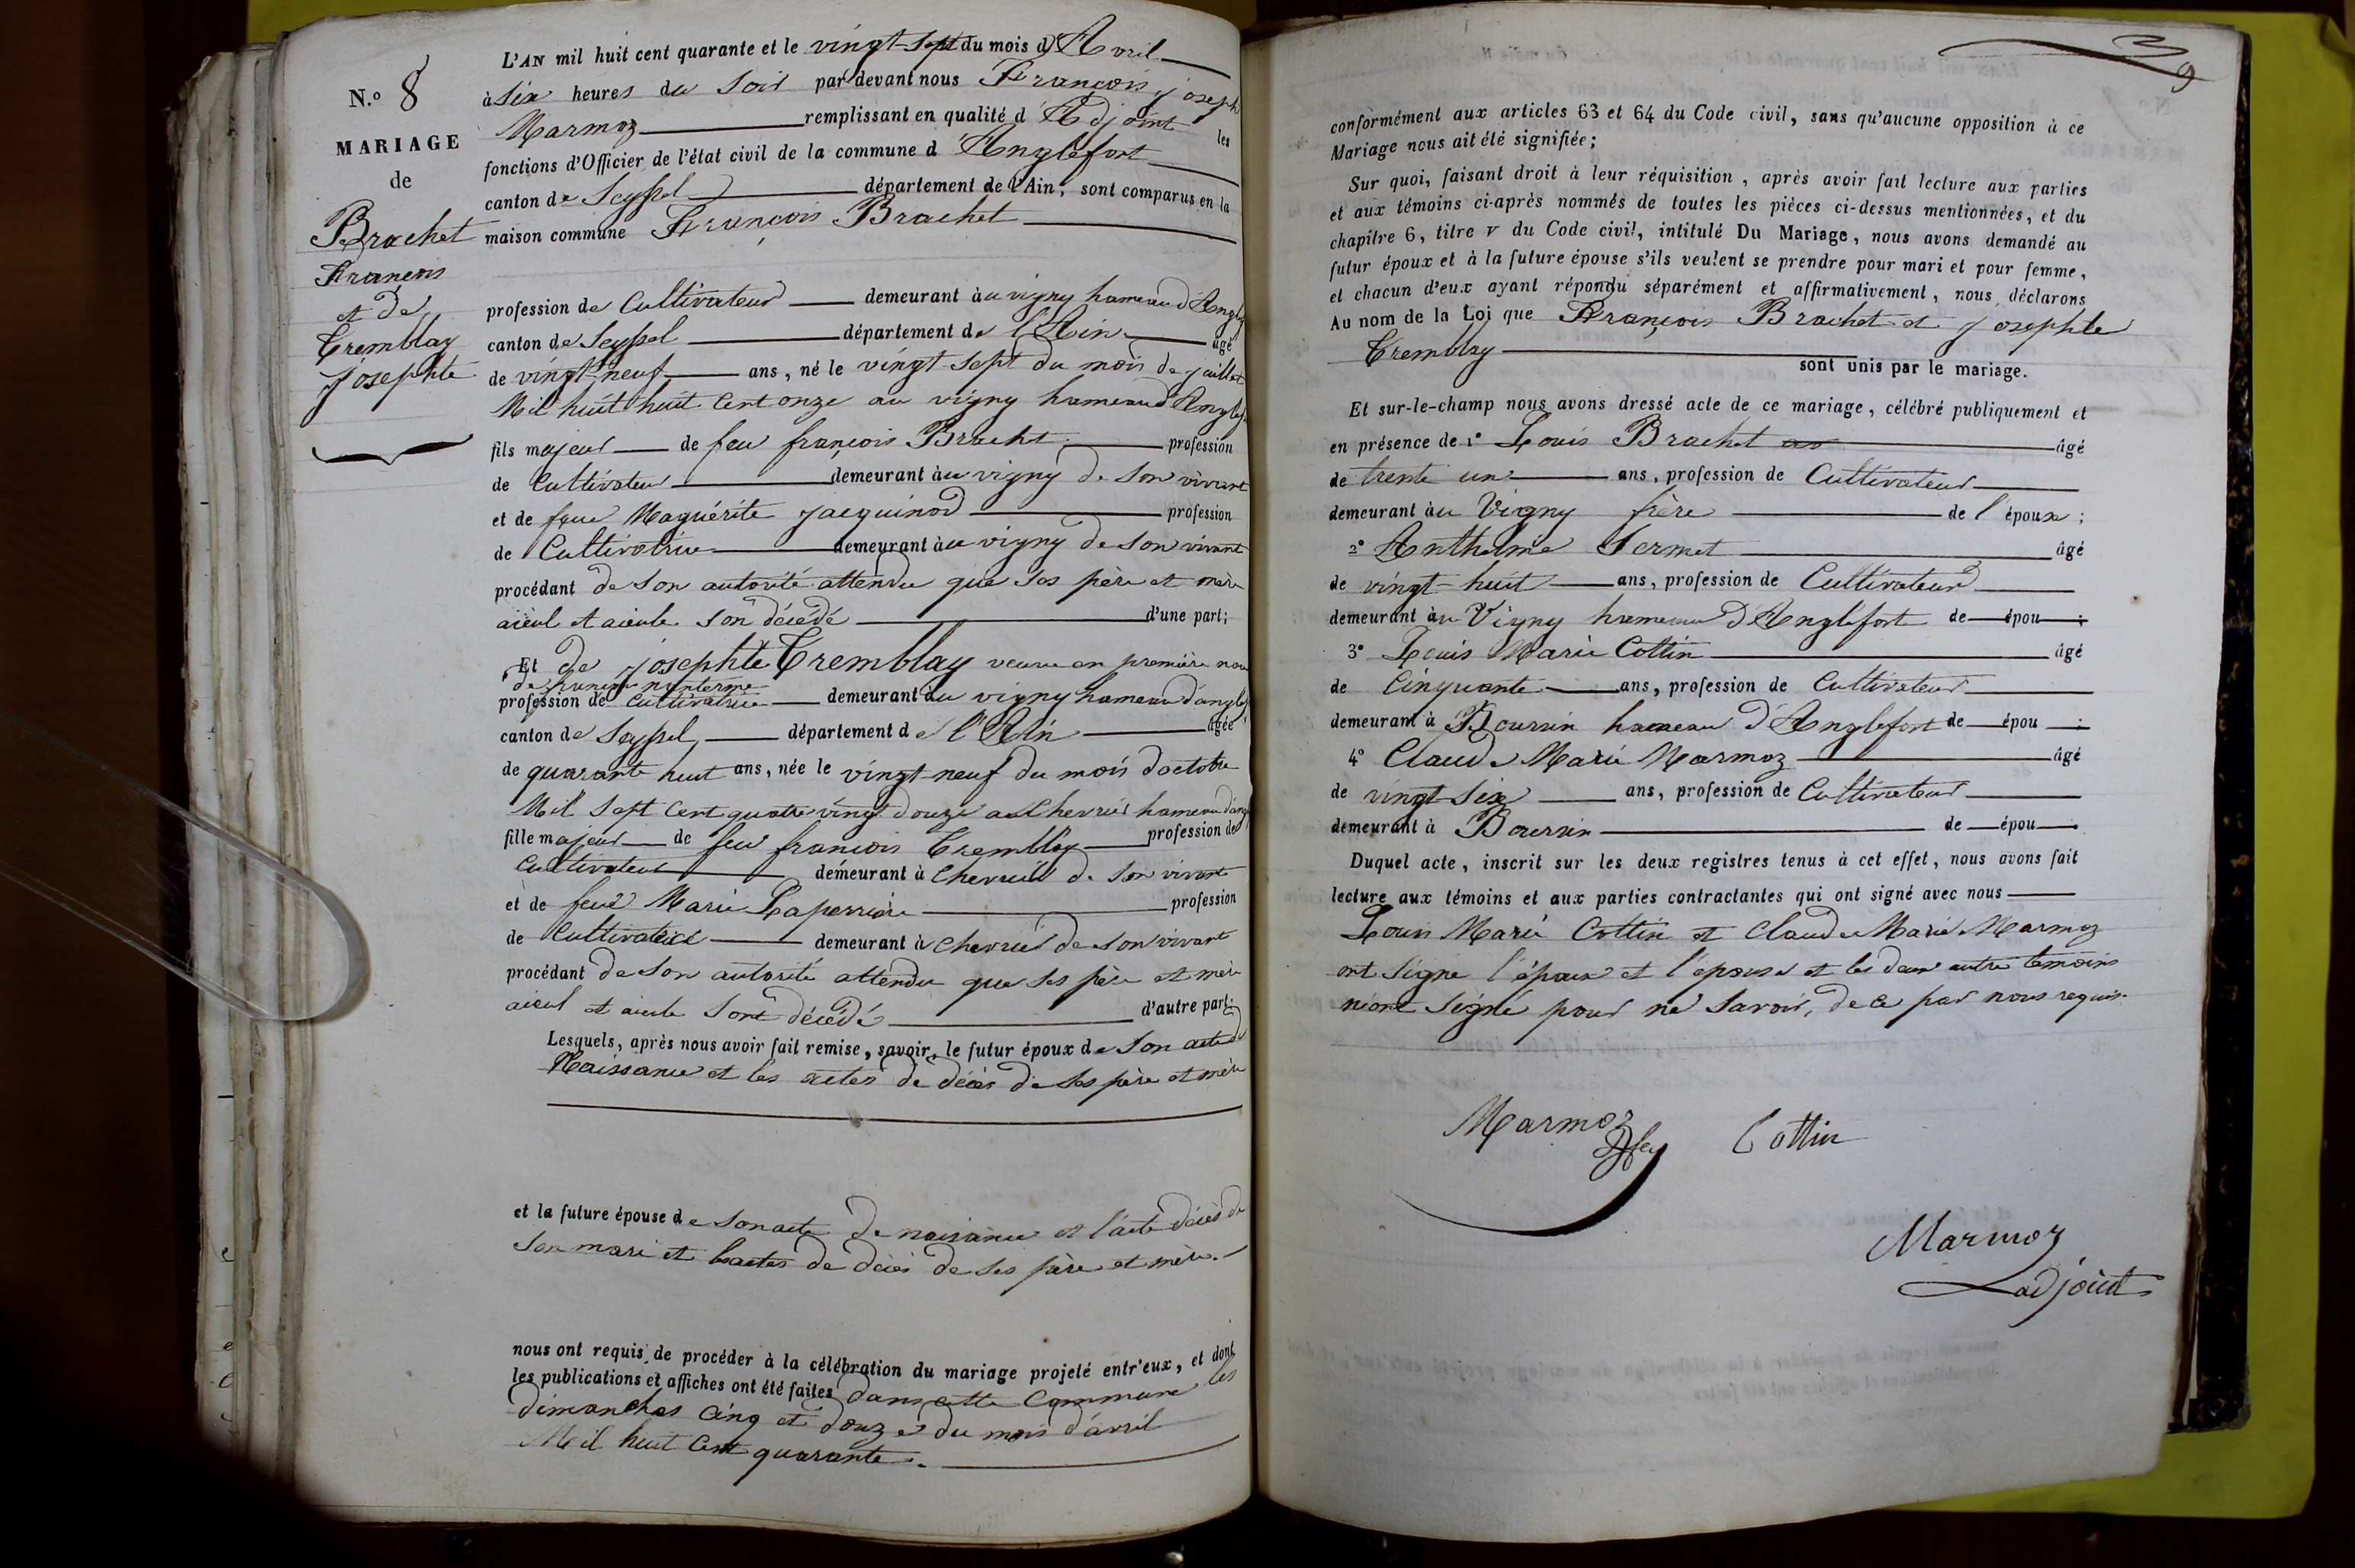 N.º 8
MARIAGE
de
Brachet
François
et de
Tremblay
Josephte
L'AN mil huit cent quarante et le vingt-sept du mois d'Avril
à six heures du soir par devant nous François joseph
Marmoz remplissant en qualité d'Adjoint les
fonctions d'Officier de l'état civil de la commune d'Anglefort
canton de Seyssel département de l'Ain, sont comparus en la
maison commune François Brachet
profession de Cultivateur demeurant àu vigny hameau d'Angle
canton de Seyssel département de l'Ain âgé
de vingt-neuf ans, né le vingt-sept du mois de juillet
Mil huit huit Cent onze au vigny hameau d'Anglef
fils majeur de feu françois Brachet profession
de Cultivateur demeurant àu vigny de son vivant
et de feue Maguérite jacquinod profession
de Cultivatrice demeurant àu vigny de son vivant
procédant de son autorité attendu que ses père et mère
aïeul et aïeule son décédé d'une part;
Et de josephte Tremblay veuve en première noce
de
profession de Cultivatrice demeurant àu vigny hameau d'anglef
canton de Seyssel département de l'Ain âgée
de quarante huit ans, née le vingt-neuf du mois d'octobre
Mil sept Cent quatre vingt douze au Chevrier hameau d'ang
fille majeur de feu françois Tremblay profession de
Cultivateur demeurant à Chevrier de son vivant
et de feue Marie Laperrière profession
de Cultivatrice demeurant à Chevrier de son vivant
procédant de son autorité attendu que ses père et mère
aïeul et aïeule sont décédés d'autre part;
Lesquels, après nous avoir fait remise, savoir, le futur époux de son acte de
Naissance et les actes de décès de ses père et mère
et la future épouse de son acte de naisance et l'acte décès de
son mari et les actes de décès de ses père et mère.
nous ont requis de procéder à la célébration du mariage projeté entr'eux, et dont
les publications et affiches ont été faites dans cette Commune les
dimanches Cinq et douze du mois d'avril
Mil huit Cent quarante.
39
conformément aux articles 63 et 64 du Code civil, sans qu'aucune opposition à ce
Mariage nous ait été signifiée;
Sur quoi, faisant droit à leur réquisition, après avoir fait lecture aux parties
et aux témoins ci-après nommés de toutes les pièces ci-dessus mentionnées, et du
chapitre 6, titre V du Code civil, intitulé Du Mariage, nous avons demandé au
futur époux et à la future épouse s'ils veulent se prendre pour mari et pour femme,
et chacun d'eux ayant répondu séparément et affirmativement, nous déclarons
Au nom de la Loi que François Brachet et josephte
Tremblay sont unis par le mariage.
Et sur-le-champ nous avons dressé acte de ce mariage, célébré publiquement et
en présence de 1º Louis Brachet âgé
de trente un ans, profession de Cultivateur
demeurant àu Vigny frère de l'époux;
2º Anthelme Sermet âgé
de vingt-huit ans, profession de Cultivateur
demeurant àu Vigny hameau d'Anglefort de épou ;
3º Louis Marie Cottin âgé
de Cinquante ans, profession de Cultivateur
demeurant à Boursin hameau d'Anglefort de épou ;
4º Claude Marie Marmoz âgé
de vingt-six ans, profession de Cultivateur
demeurant à Boursin de épou .
Duquel acte, inscrit sur les deux registres tenus à cet effet, nous avons fait
lecture aux témoins et aux parties contractantes qui ont signé avec nous
Louis Marie Cottin et Claude Marie Marmoz
ont signé l'époux et l'épouse et les deux autre temoins
n'iont signé pour ne savoir, de ce par nous requis.
Marmoz Cottin
Marmoz
adjoint